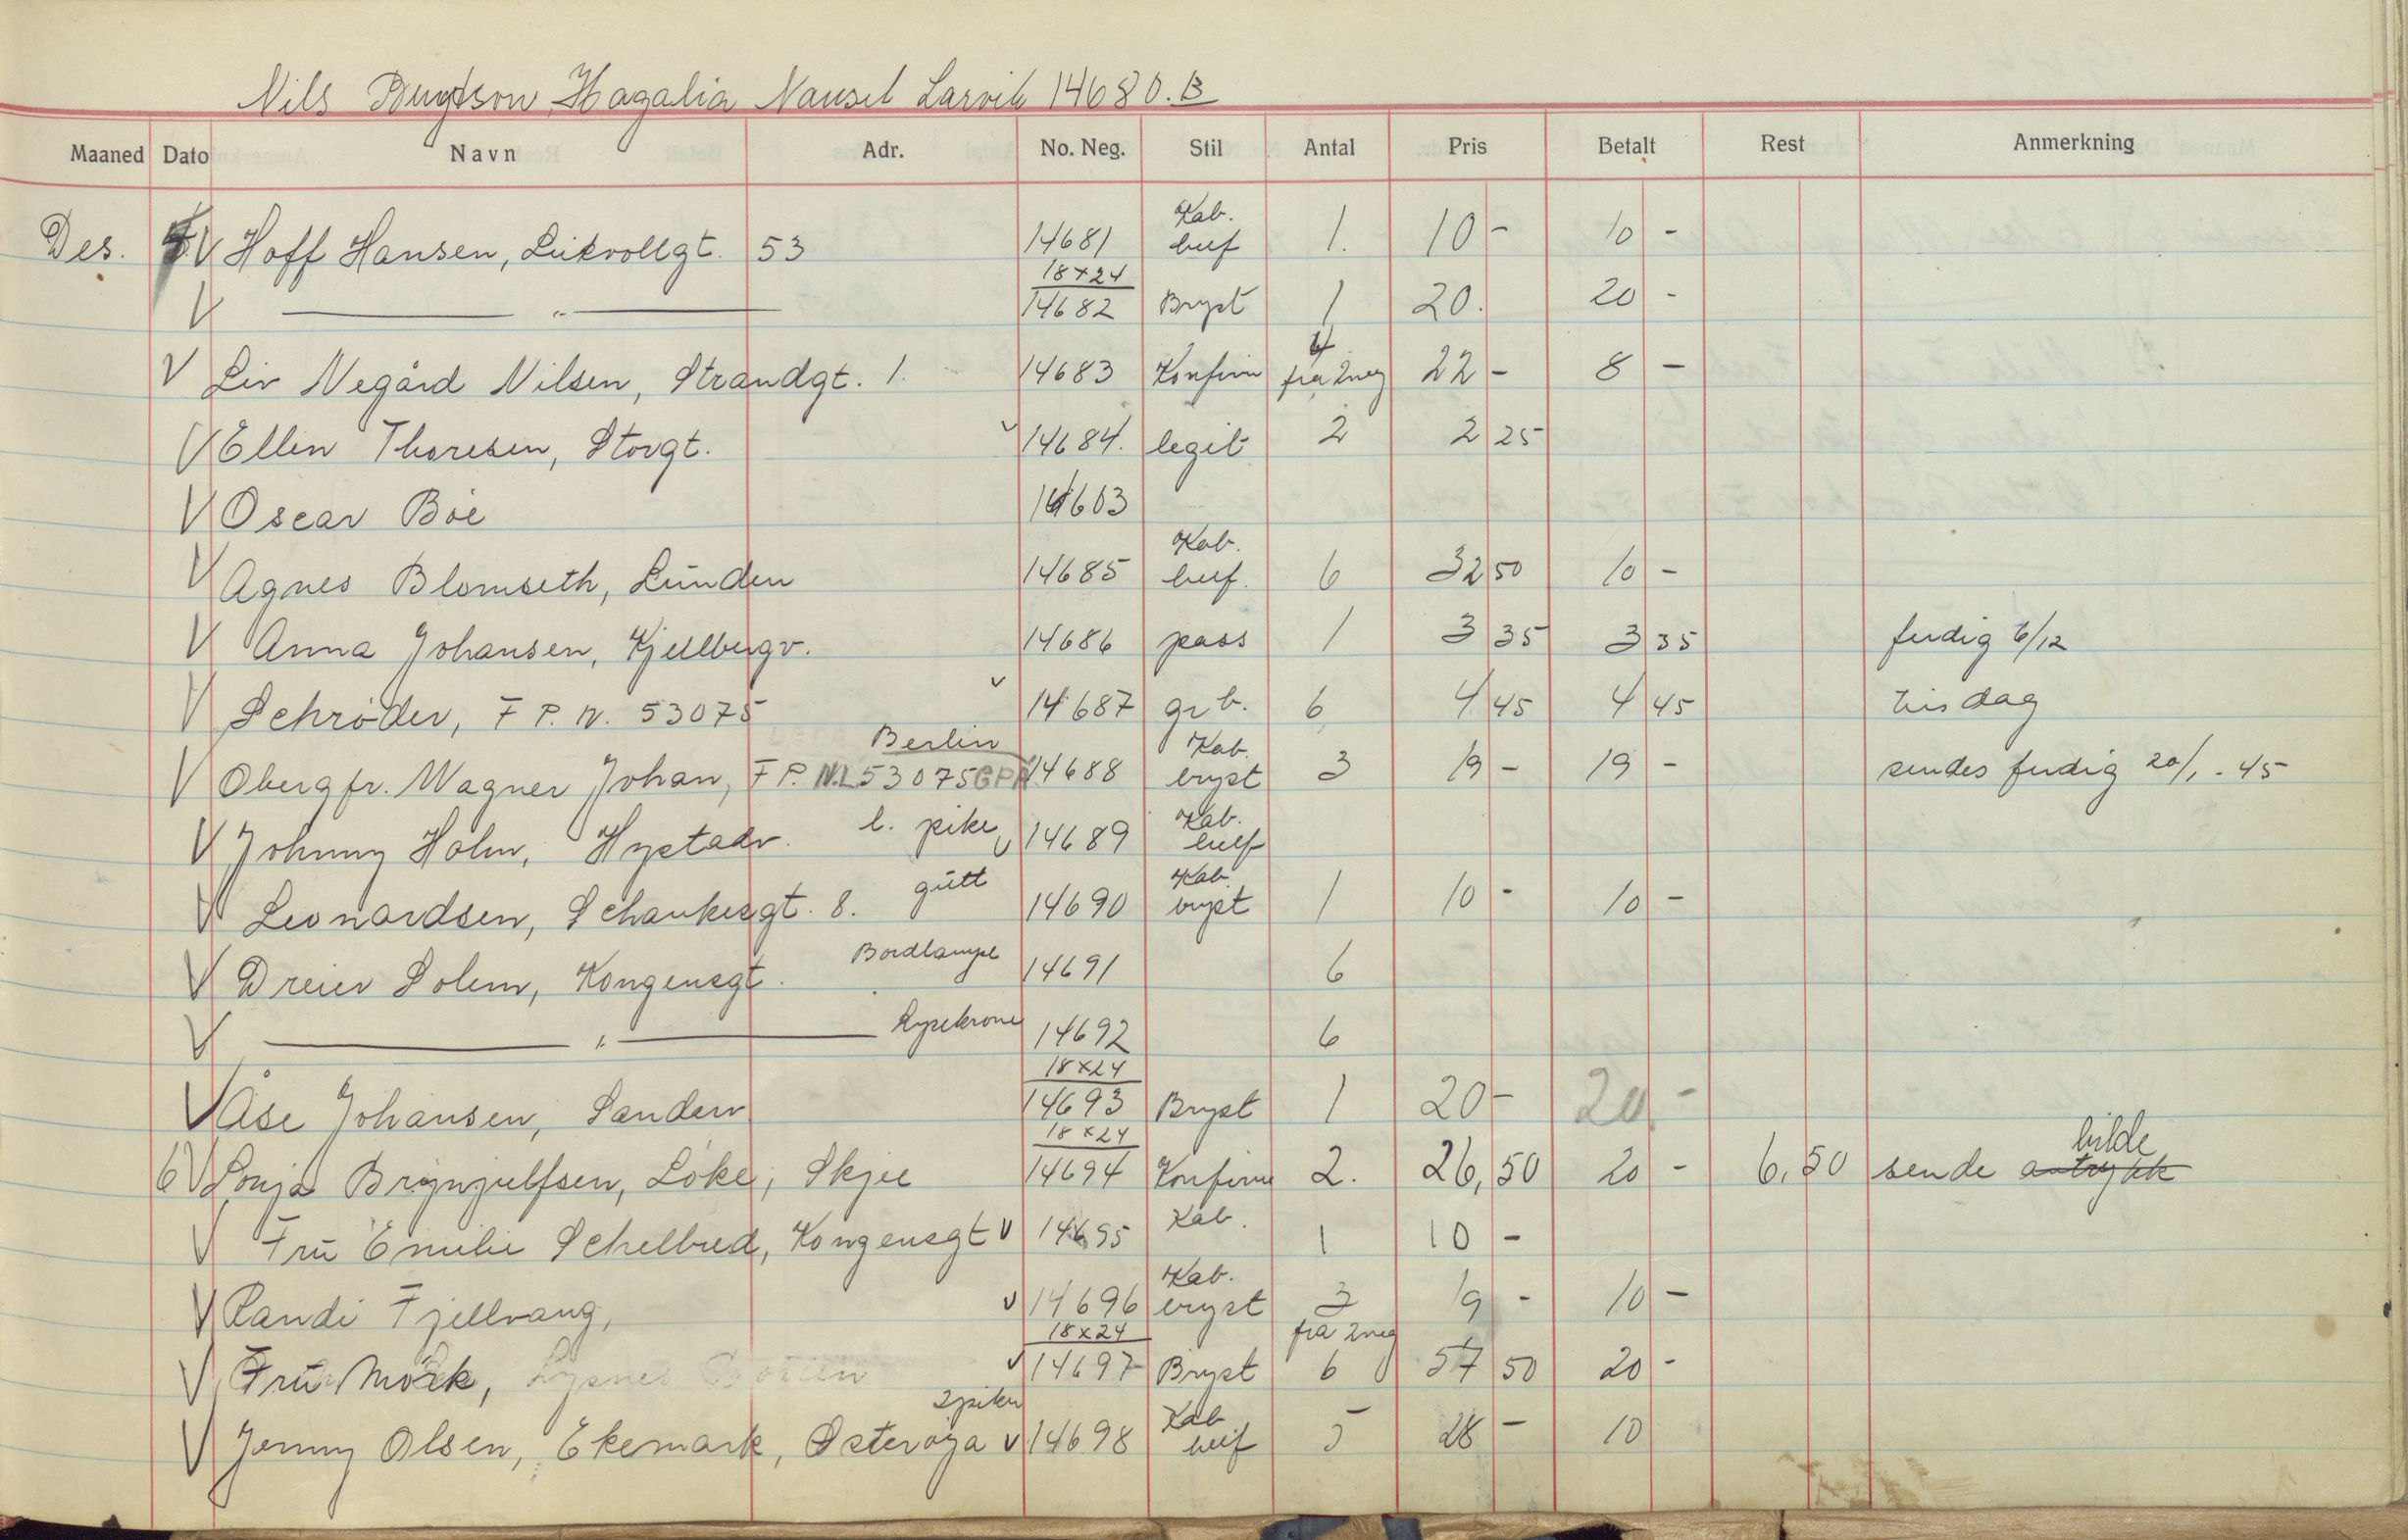 Nils Bugtson, Hagalia Nauset Larvik 14680.B
Maaned Dato Navn Adr. No. Neg. Stil Antal Pris Betalt Rest Anmerkning
Des. V Hoff Hansen, Lükvollgt. 53 14681 Kab. buf 1. 10 - 10 -
V — " — 18x24 14682 Bryst 1 20. 20 -
V Liv Negård Nilsen, Strandgt. 1. 14683 Konfirm 4 fra 2 neg 22 - 8 -
V Ellen Thoresen, Storgt. V 14684. legit 2 2 25
V Oscar Böe 14603
V Agnes Blomseth, Lünden 14685 Kab. buf. 6 32 50 10 -
V Anna Johansen, Kjellbergv. 14686 pass 1 3 35 3 35 ferdig 6/12
V Schröder, F P. N. 53075 V 14687 gr b. 6 4 45 4 45 tirsdag
V Obergfr. Wagner Johan, F P. N.L 53075 GPA Berlin 14688 Kab. bryst 3 19 - 19 - sendes ferdig 20/1 - 45
V Johnny Holm, Hystadv. l. pike V 14689 Kab. buf
V Leonardsen, Schankesgt. 8. gütt 14690 Kab. bryst 1 10 - 10 -
V Dreier Solem, Kongensgt. Bordlampe 14691 6
V — " — Lysekrone 14692 6
V Åse Johansen, Sanderv 18x24 14693 Bryst 1 20 - 20 -
6 V Sonja Brynjulfsen, Löke, Skjee 18x24 14694 Konfirm 2. 26,50 20 - 6,50 sende avtrykk bilde
V Frü Emilie Schelbred, Kongensgt V 14695 Kab. 1 10 -
V Randi Fjellvang, V 14696 Kab. bryst 3 19 - 10 -
V Frü Mörk, V 18x24 14697 Bryst fra 2 neg 6 57 50 20 -
V Jenny Olsen, Ekemark, Österöya 2 piker V 14698 Kab buf 5 28 - 10